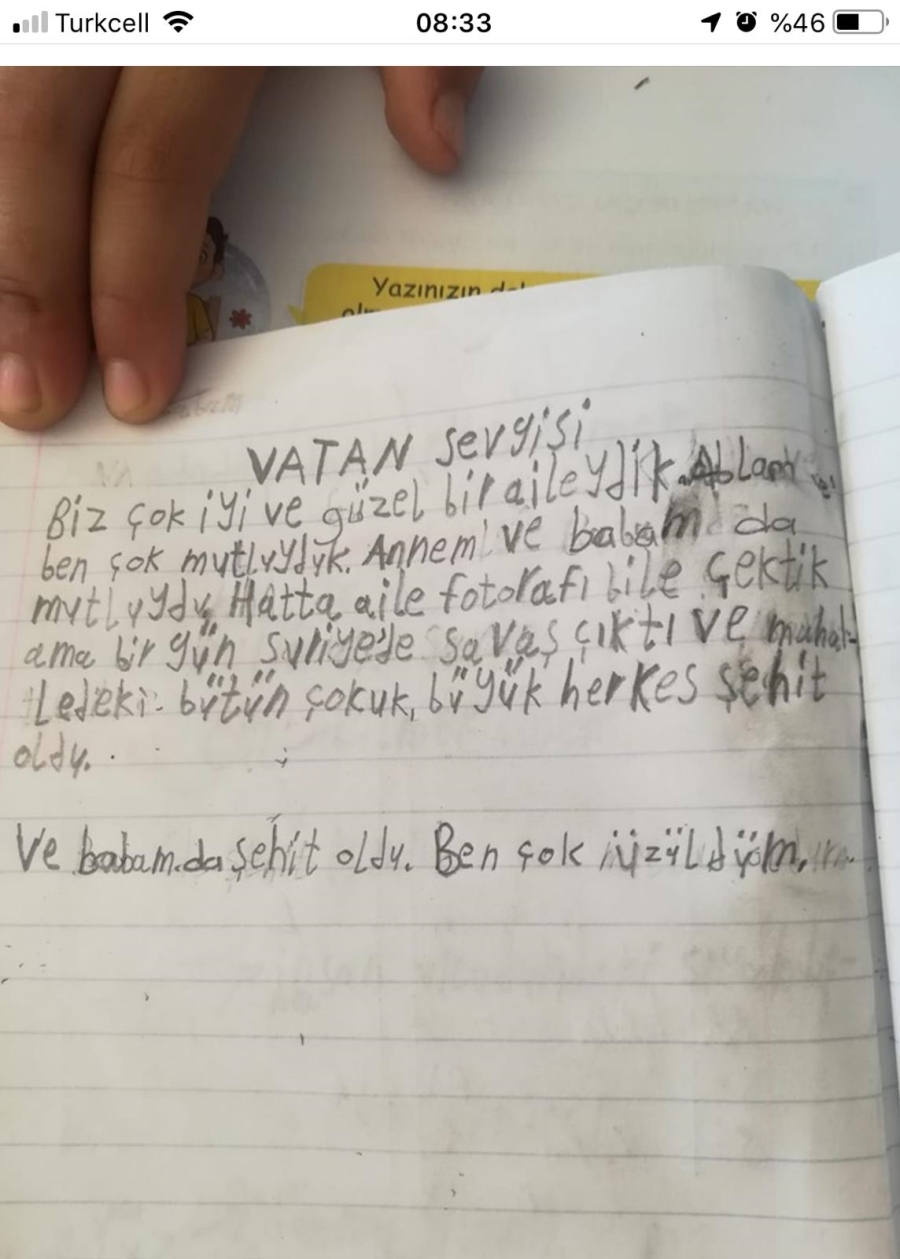 Turkcell 08:33 %46
Yazınızın
VATAN Sevgisi
Biz çok iyi ve güzel bir aileydik. Ablam ve
ben çok mutluyduk. Annem ve babam da
mutluydu. Hatta aile fotorafı bile çektik
ama bir gün suriyede savaş çıktı ve mahal-
ledeki bütün çokuk, büyük herkes şehit
oldu.
Ve babam.da şehit oldu. Ben çok üzüldüöm.